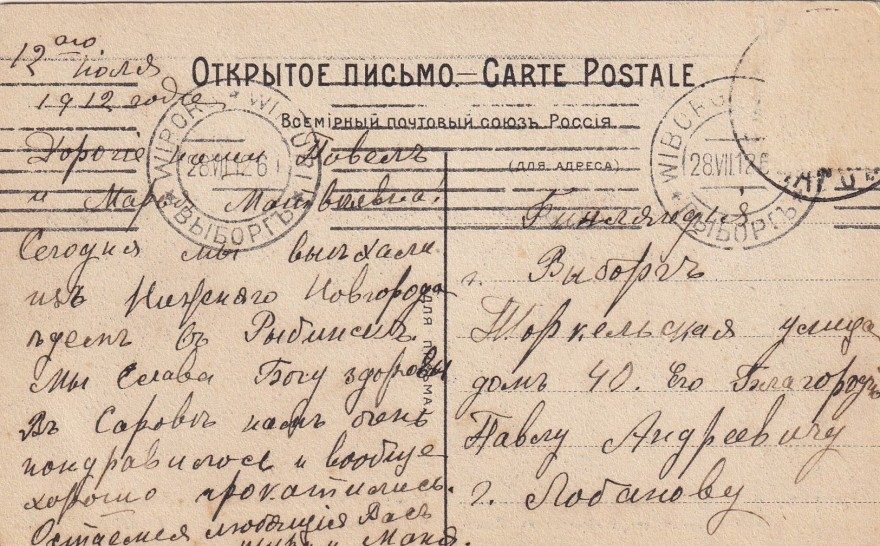 12ого
Июля
1912 года
ОТКРЫТОЕ ПИСЬМО.—CARTE POSTALE
Всемірный почтовый союзъ. Россія.
(ДЛЯ АДРЕСА)
ДЛЯ ПИСЬМА
WIBORG WIPURI
28.VII.12.6
ВЫБОРГЪ
WIBORG
28.VII.12.6
ВЫБОРГЪ
Дорогіе наши Павелъ
и Марія Матвѣевна!
Сегодня мы выѣхали
изъ Нижняго Новгорода
ѣдемъ въ Рыбинскъ.
Мы Слава Богу здоровы
Въ Саровѣ намъ очень
пондравилось и вообще
хорошо прокатились.
Остаемся любящія Васъ
и Маня.
Финляндія
г. Выборгъ
Торкельская улица
домъ 40. Его Благородію
Павлу Андреевичу
г. Лобанову